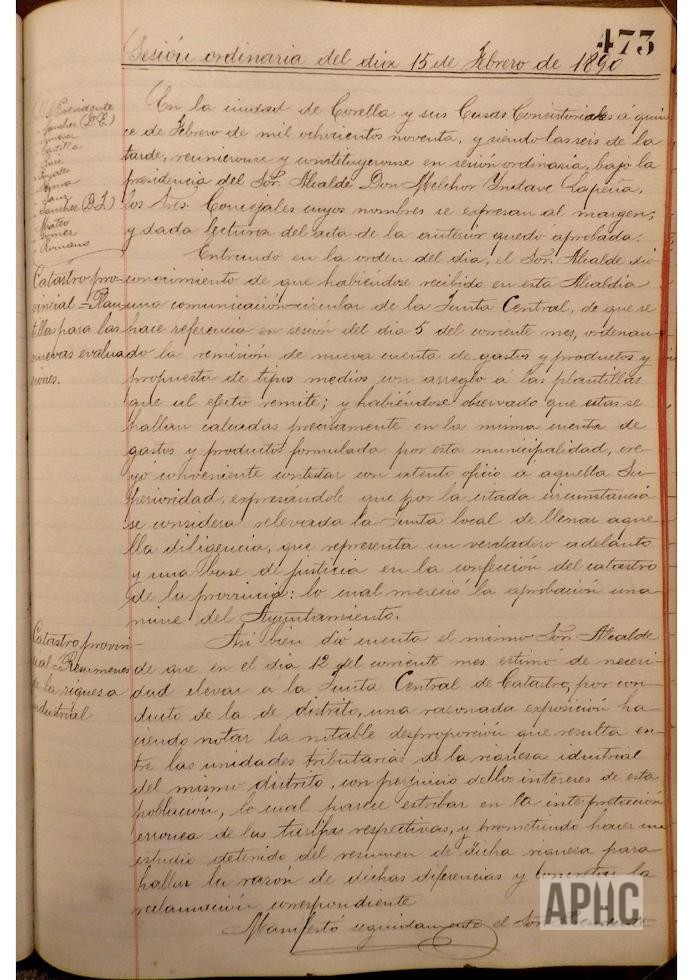 473
Sesión ordinaria del dia 15 de Febrero de 1890
Sr. Presidente
" Sanchez (D.E.)
" Castilla
" Sanz
" Sanchez (D.J.)
" Mateo
" Gomez
" Romano
En la ciudad de Corella y sus Casas Consistoriales á quin
ce de Febrero de mil ochocientos noventa, y siendo las seis de la
tarde, reunieronse y constituyeronse en sesión ordinaria, bajo la
presidencia del Sor. Alcalde Don Melchor Ynclave Lapeña,
los Sres. Concejales cuyos nombres se expresan al margen,
y dada lectura del acta de la anterior quedó aprobada.
Entrando en la orden del dia, el Sor. Alcalde dió
Catastro pro-
vincial = Plan
tillas para las
nuevas evalua
ciones.
conocimiento de que habiéndose recibido en esta Alcaldía
una comunicación-circular de la Junta Central, de que se
hace referencia en sesion del dia 5 del corriente mes, ordenan-
do la remisión de nueva cuenta de gastos y productos y
propuesta de tipos medios con arreglo á las plantillas
que al efecto remite; y habiéndose observado que estas se
hallan calcadas precisamente en la misma cuenta de
gastos y productos formulada por esta municipalidad, cre-
yó conveniente contestar con atento oficio a aquella Su-
perioridad, expresándole que por la citada circunstancia
se considera relevada la Junta local de llenar aque-
lla diligencia, que representa un verdadero adelanto
y una base de justicia en la confección del catastro
de la provincia: lo cual mereció la aprobación uná-
nime del Ayuntamiento.
Catastro provin-
cial = Resumenes
de la riquesa
industrial
Asi bien dió cuenta el mismo Sor. Alcalde
de que en el dia 12 del corriente mes estimó de necesi-
dad elevar a la Junta Central de Catastro, por con-
ducto de la de distrito, una razonada exposición ha-
ciendo notar la notable desproporción que resulta en-
tre las unidades tributarias de la riquesa idustrial
del mismo distrito, con perjuicio de los intereses de esta
población, lo cual parece estribar en la interpretación
erronea de las tarifas respectivas, y prometiendo hacer un
estudio detenido del resumen de dicha riquesa para
hallar la razón de dichas diferencias y concretar la
reclamación correspondiente
Manifestó seguidamente el Sor. Presidente
APHC